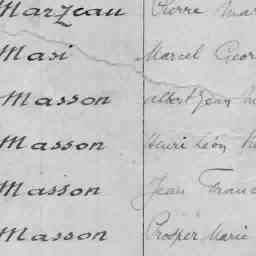 Marzeau Pierre Mar
Masi Marcel Geor
Masson Albert Jean
Masson Henri Léon
Masson Jean Franc
Masson Prosper Marie